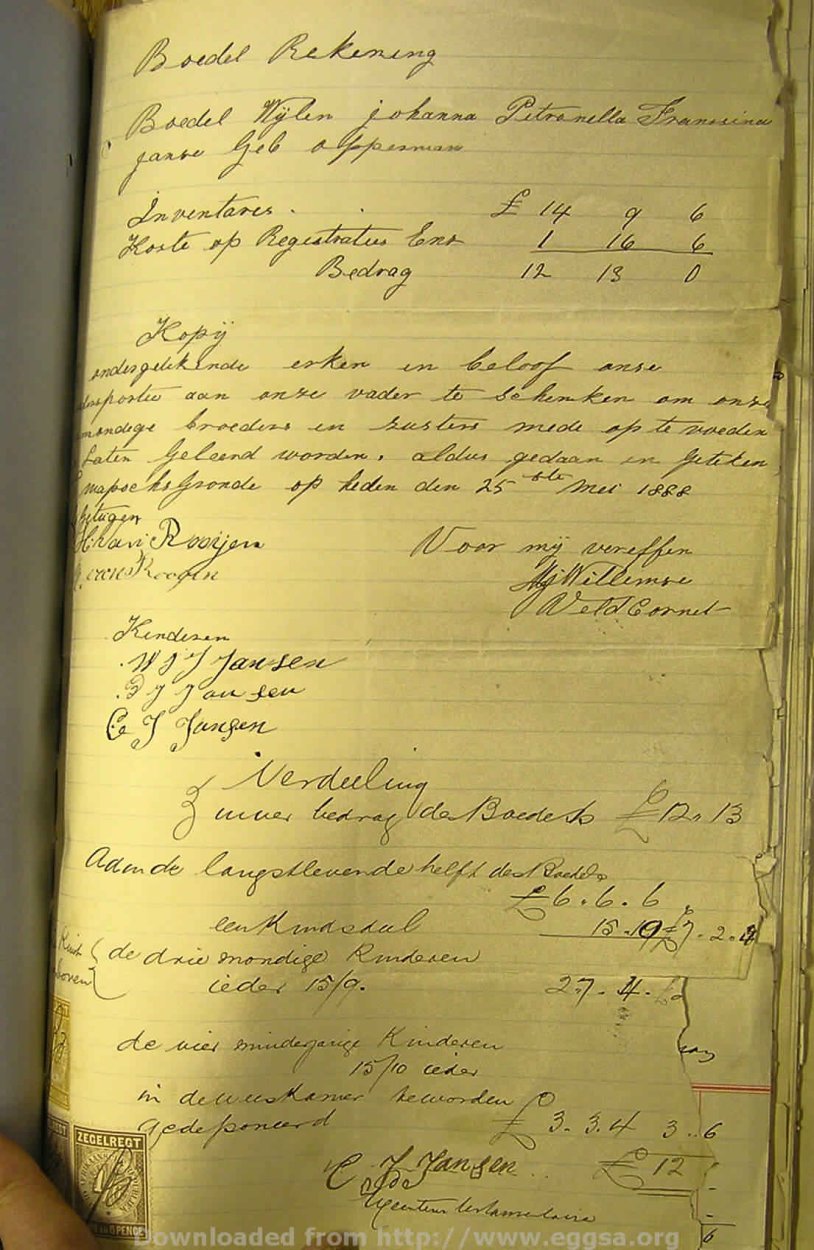 Boedel Rekening
Boedel Wijlen Johanna Petronella Franssina
Janse Geb Opperman
Inventaris £ 14 9 6
Koste op Registratie Enz 1 16 6
Bedrag 12 13 0
Kopij
ondergetekende erken en beloof onse
portie aan onze vader te schenken om onze
mondige broeders en susters mede op te voeden
Laten Geleend worden. aldus gedaan en geteken
mapochsgronde op heden den 25ste Mei 1888
getuigen
H van Rooijen Voor mij vereffen
van Rooyen Willemse
VeldCornet
Kinderen
W J J Jansen
P J Jansen
C J Jansen
Verdeeling
zuiver bedrag des Boedels £12.13
Aan de langstlevende helft des Boedels
£6.6.6
een Kindsdeel 15.10 £7.2.4
de drie mondige Kinderen
ieder 15/9. 2.7.4
de vier minderjarige Kinderen
15/10 ieder
in de weeskamer te worden
gedeponeerd £ 3.3.4 3..6
C J Jansen £12
Executeur testamentaire
6
ZEGELREGT
6 PENCE
Downloaded from http://www.eggsa.org